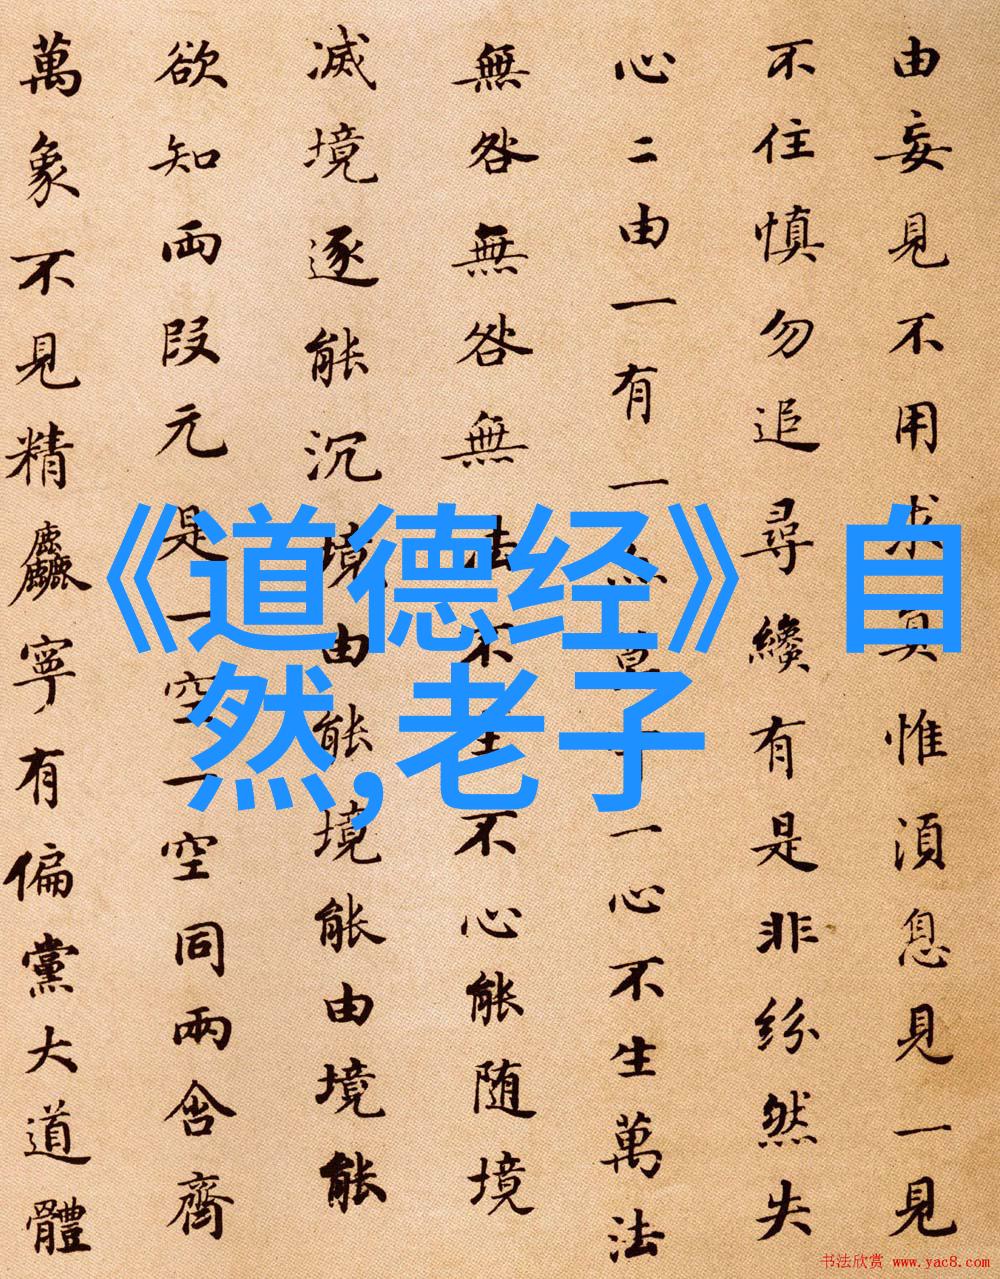 由妄見不用求真惟湏息見一見
不住慎勿追尋纔有是非紛然失
心二由一有一亦莫一心不生萬法
無咎無咎無法不生不心能随境
滅境逐能沉境由能境能由境能
欲知兩段元是一空一空同兩含齊
萬象不見精麤寧有偏黨大道體
《道德经》自
然,老子
书法欣赏 www.yac8.com